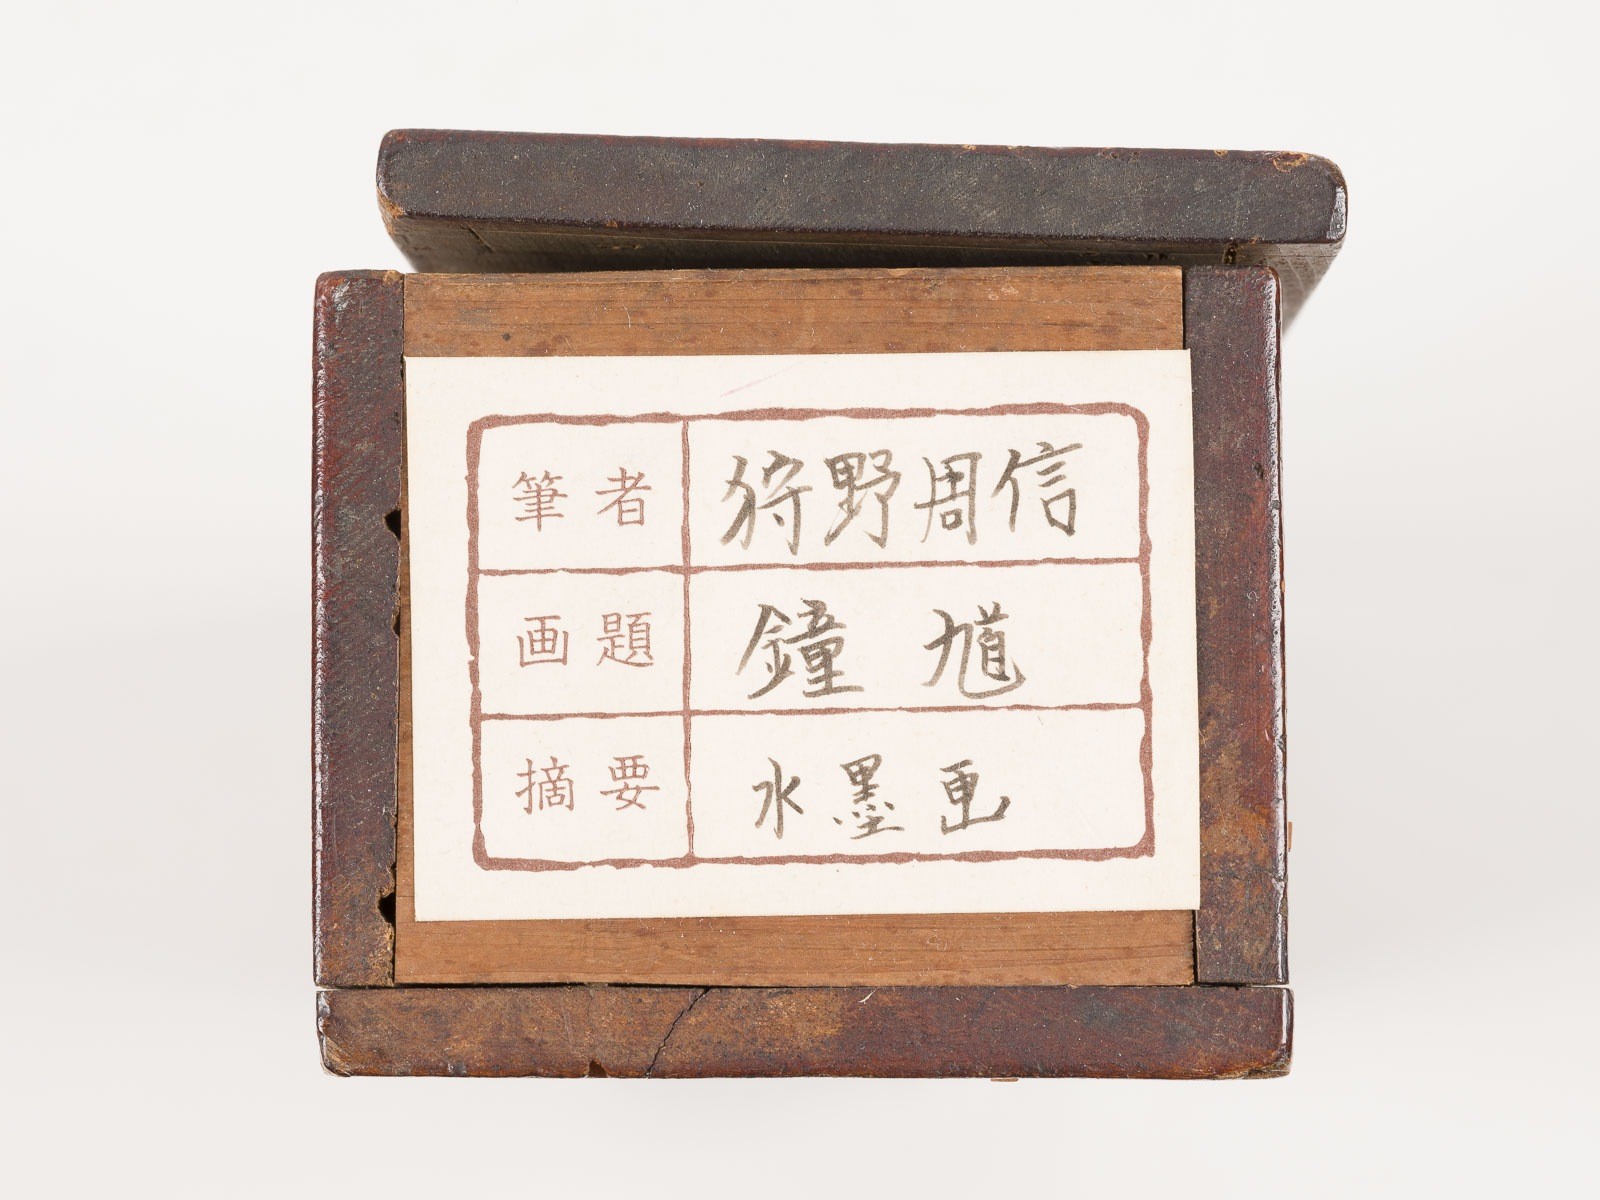 筆者 狩野周信
画題 鐘馗
摘要 水墨画